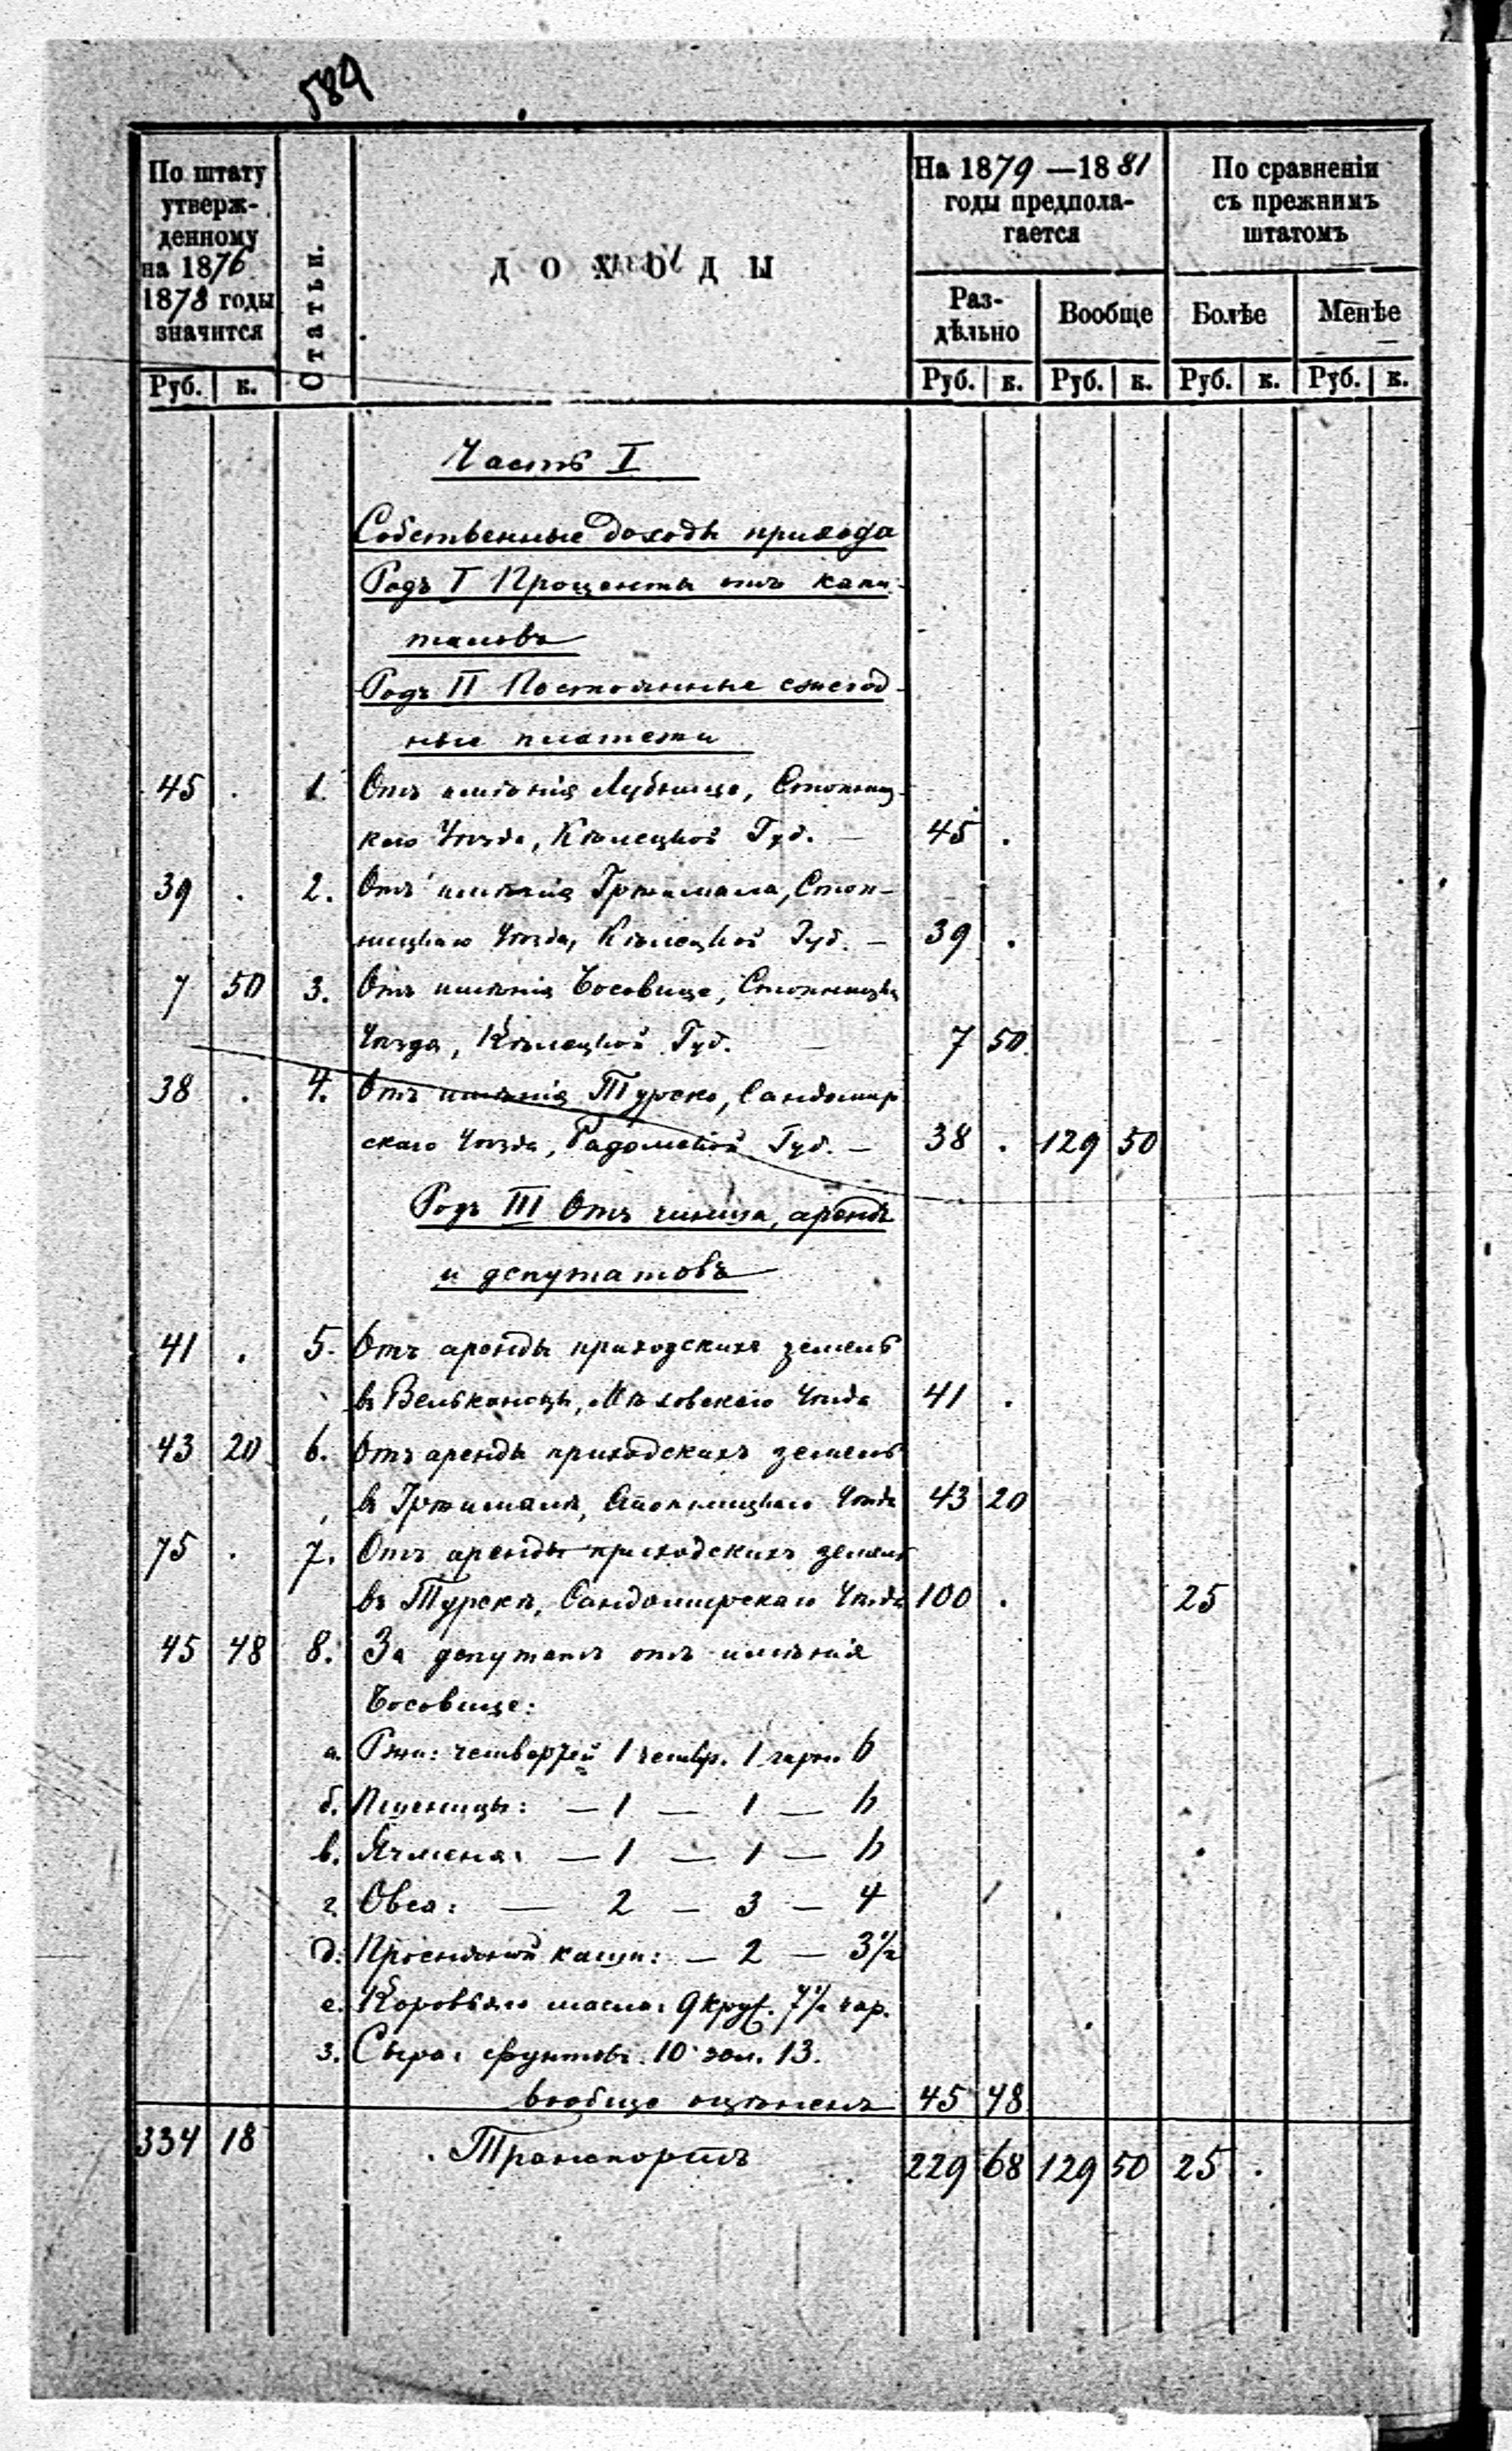 589
По штату
утверж-
денному
на 1876
1878 годы
значится
Руб. к.
Статьи.
ДОХОДЫ
На 1879 —1881
годы предпола-
гается
Раз-
дѣльно
Вообще
Руб. к. Руб. к.
По сравненiи
съ прежнимъ
штатомъ
Болѣе Менѣе
Руб. к. Руб. к.
Часть I
Собственные доходы прихода
Родъ I Проценты отъ капи-
таловъ
Родъ II Постоянные ежегод-
ные платежи
45 . 1. Отъ имѣнія Лубнице, Стопниц-
каго Уѣзда, Кѣлецкой Губ. — 45 .
39 . 2. Отъ имѣнія Гржимала, Стоп-
ницкаго Уѣзда, Кѣлецкой Губ. — 39 .
7 50 3. Отъ имѣнія Босовице, Стопницк.
Уѣзда, Кѣлецкой Губ. — 7 50.
38 . 4. Отъ имѣнія Турско, Сандомир
скаго Уѣзда, Радомской Губ. — 38 . 129 50
Родъ III Отъ чинша, арендъ
и депутатовъ
41 . 5. Отъ аренды приходскихъ земель
въ Мѣховскаго Уѣзда 41 .
43 20 6. Отъ аренды приходскихъ земель
въ Гржималѣ, Стопницкаго Уѣзда 43 20
75 . 7. Отъ аренды приходскихъ земель
въ Турскѣ, Сандомирскаго Уѣзда 100 . 25
45 48 8. За депутатъ отъ имѣнія
Босовице:
а. Ржи: четвертей 1 четвр. 1 гарн. 6
б. Пшеницы: — 1 — 1 — 6
в. Ячменя: — 1 — 1 — 6
г. Овса: — 2 — 3 — 4
д. Просяной каши: — 2 — 3½
е. Коровьяго масла: 9 круж. 7½ чар.
з. Сыра: фунтовъ 10 зол. 13.
вообще оцѣненъ 45 48
334 18 Транспортъ 229 68 129 50 25 .